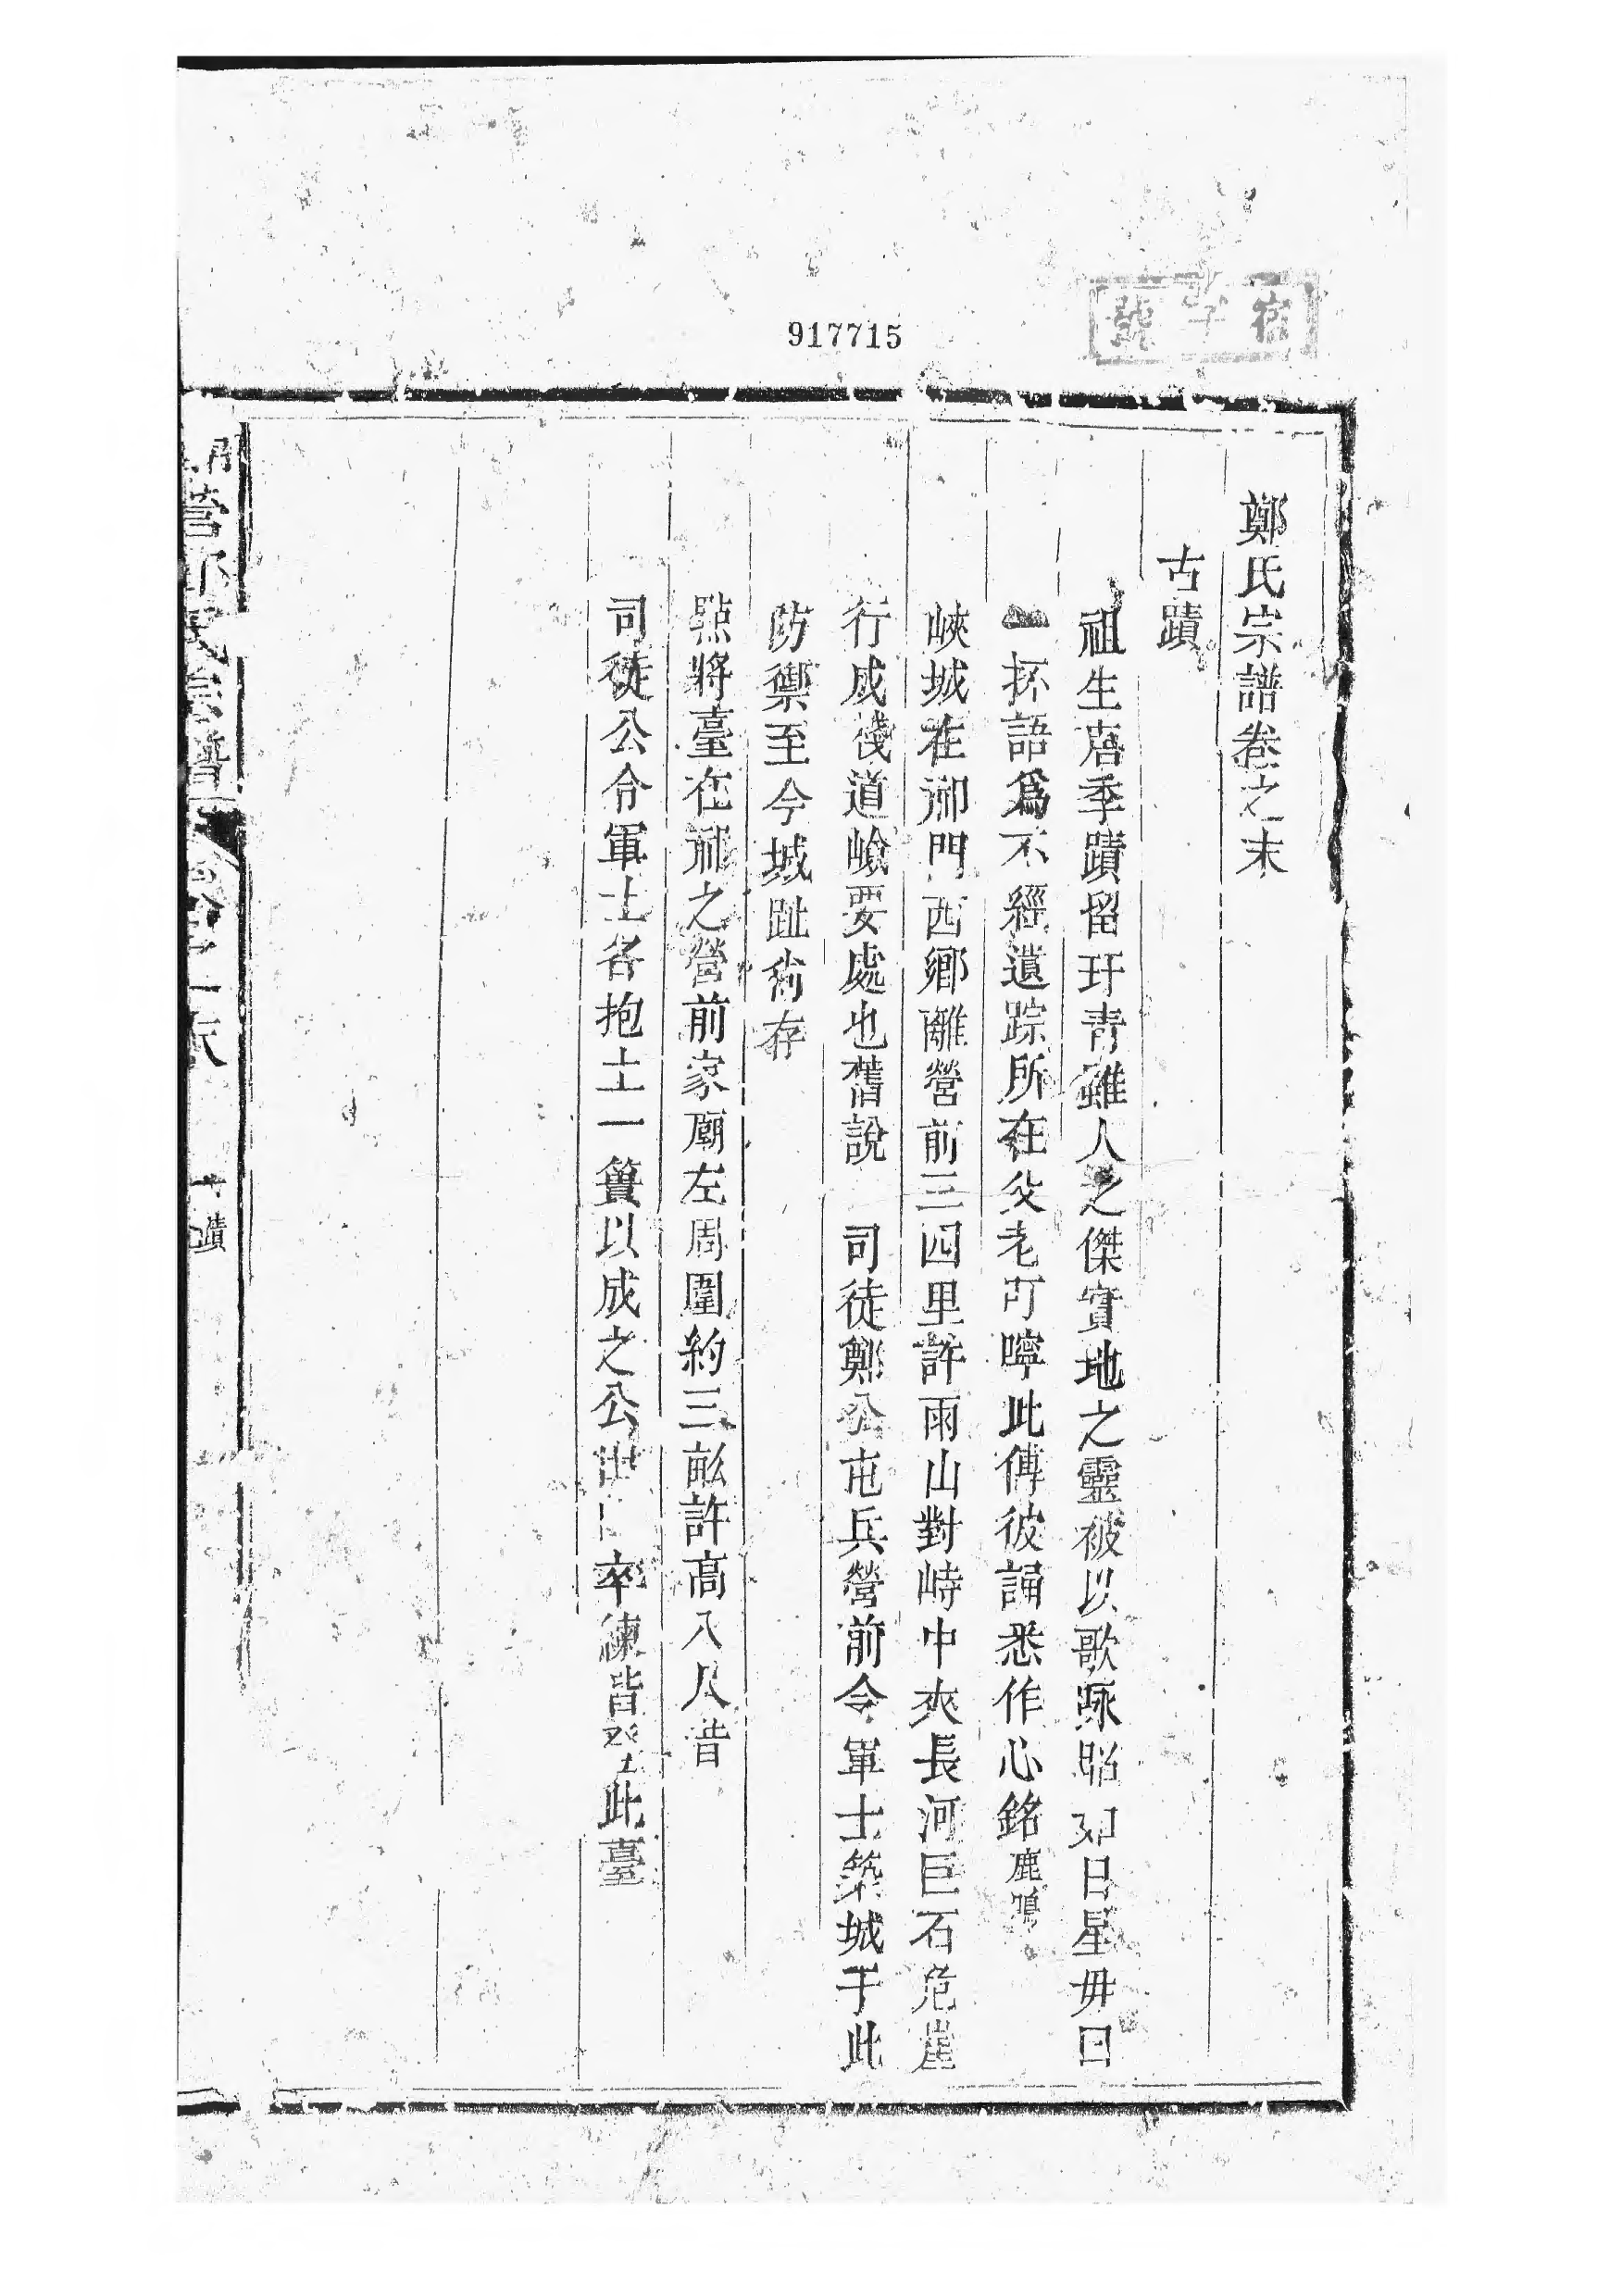 宿字號
917715
鄭氏宗譜卷之末
古蹟
祖生唐季蹟留玕青雖人之傑實地之靈被以歌咏昭如日星毋曰
一抔語爲不經遺踪所在父老叮嚀此傳彼誦悉作心銘鹿鳴
峽城在邵門西鄉離營前三四里許兩山對峙中夾長河巨石危崖
行成棧道嶮要處也舊說 司徒鄭公屯兵營前令軍士築城于此
防禦至今城趾尚存
點將臺在邵之營前家廟左周圍約三畝許高八尺昔
司徒公令軍士各抱土一簣以成之公出 卒練皆登此臺
營鄭氏宗譜 卷之末 古蹟